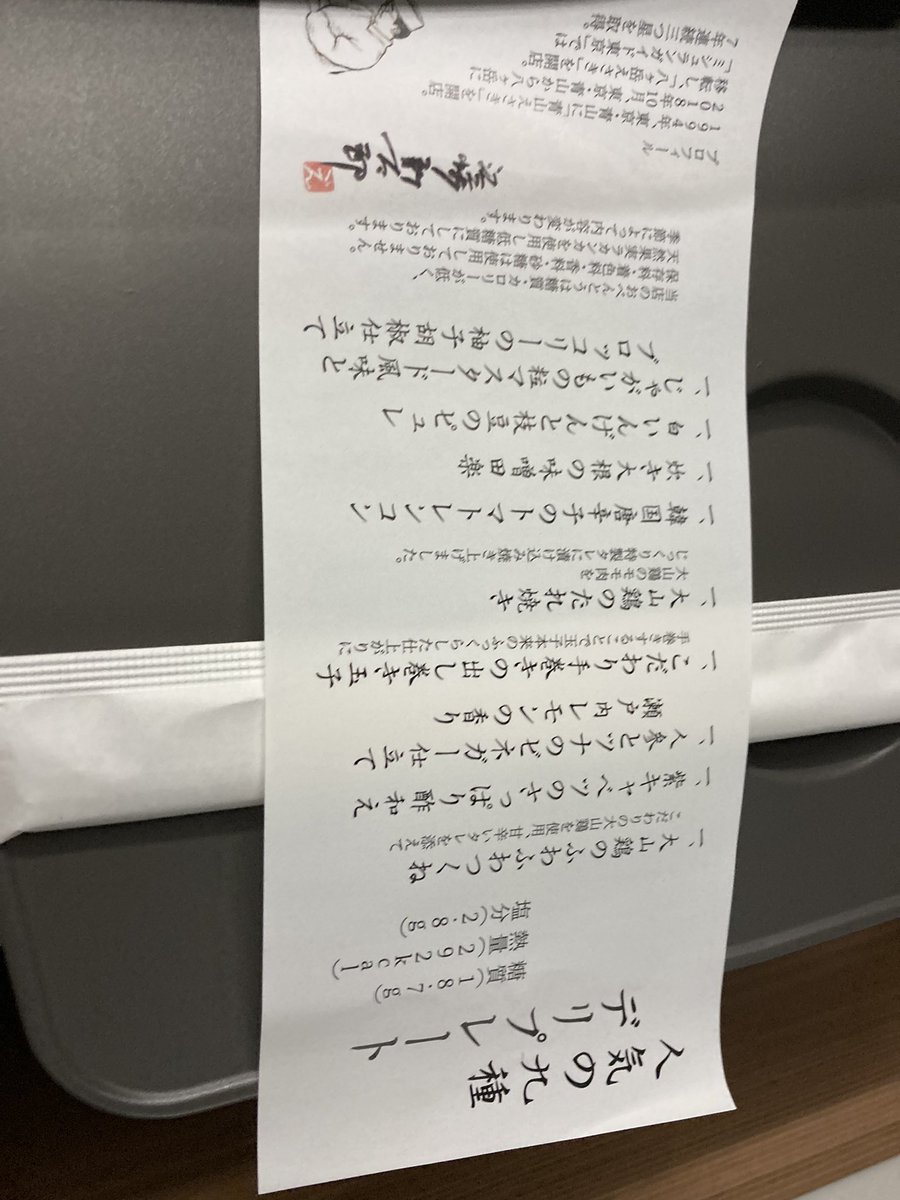 人気の九種
デリプレート
糖質(18.7g)
熱量(292kcal)
塩分(2.8g)
一、大山鶏のふわふわつくね
こだわりの大山鶏を使用、甘辛いタレを添えて
一、紫キャベツのさっぱり酢和え
一、人参とツナのビネガー仕立て
瀬戸内レモンの香り
一、こだわり手巻きの出し巻き玉子
手巻きすることで玉子本来のふっくらした仕上がりに
一、大山鶏のたれ焼き
大山鶏のモモ肉を
じっくり特製タレに漬け込み焼き上げました。
一、韓国唐辛子のトマトレンコン
一、炊き大根の味噌田楽
一、白いんげんと枝豆のピュレ
一、じゃがいもの粒マスタード風味と
ブロッコリーの柚子胡椒仕立て
当店のおべんとうは糖質・カロリーが低く、
保存料・着色料・香料・砂糖は使用しておりません。
天然果実ラカンカを使用し低糖質にしております。
季節によって内容が変わります。
プロフィール
1994年、東京・青山に「青山えさき」を開店。
2018年10月、東京・青山から八ヶ岳に
移転し、「八ヶ岳えさき」を開店。
「ミシュランガイド東京」では
7年連続三つ星を取得。